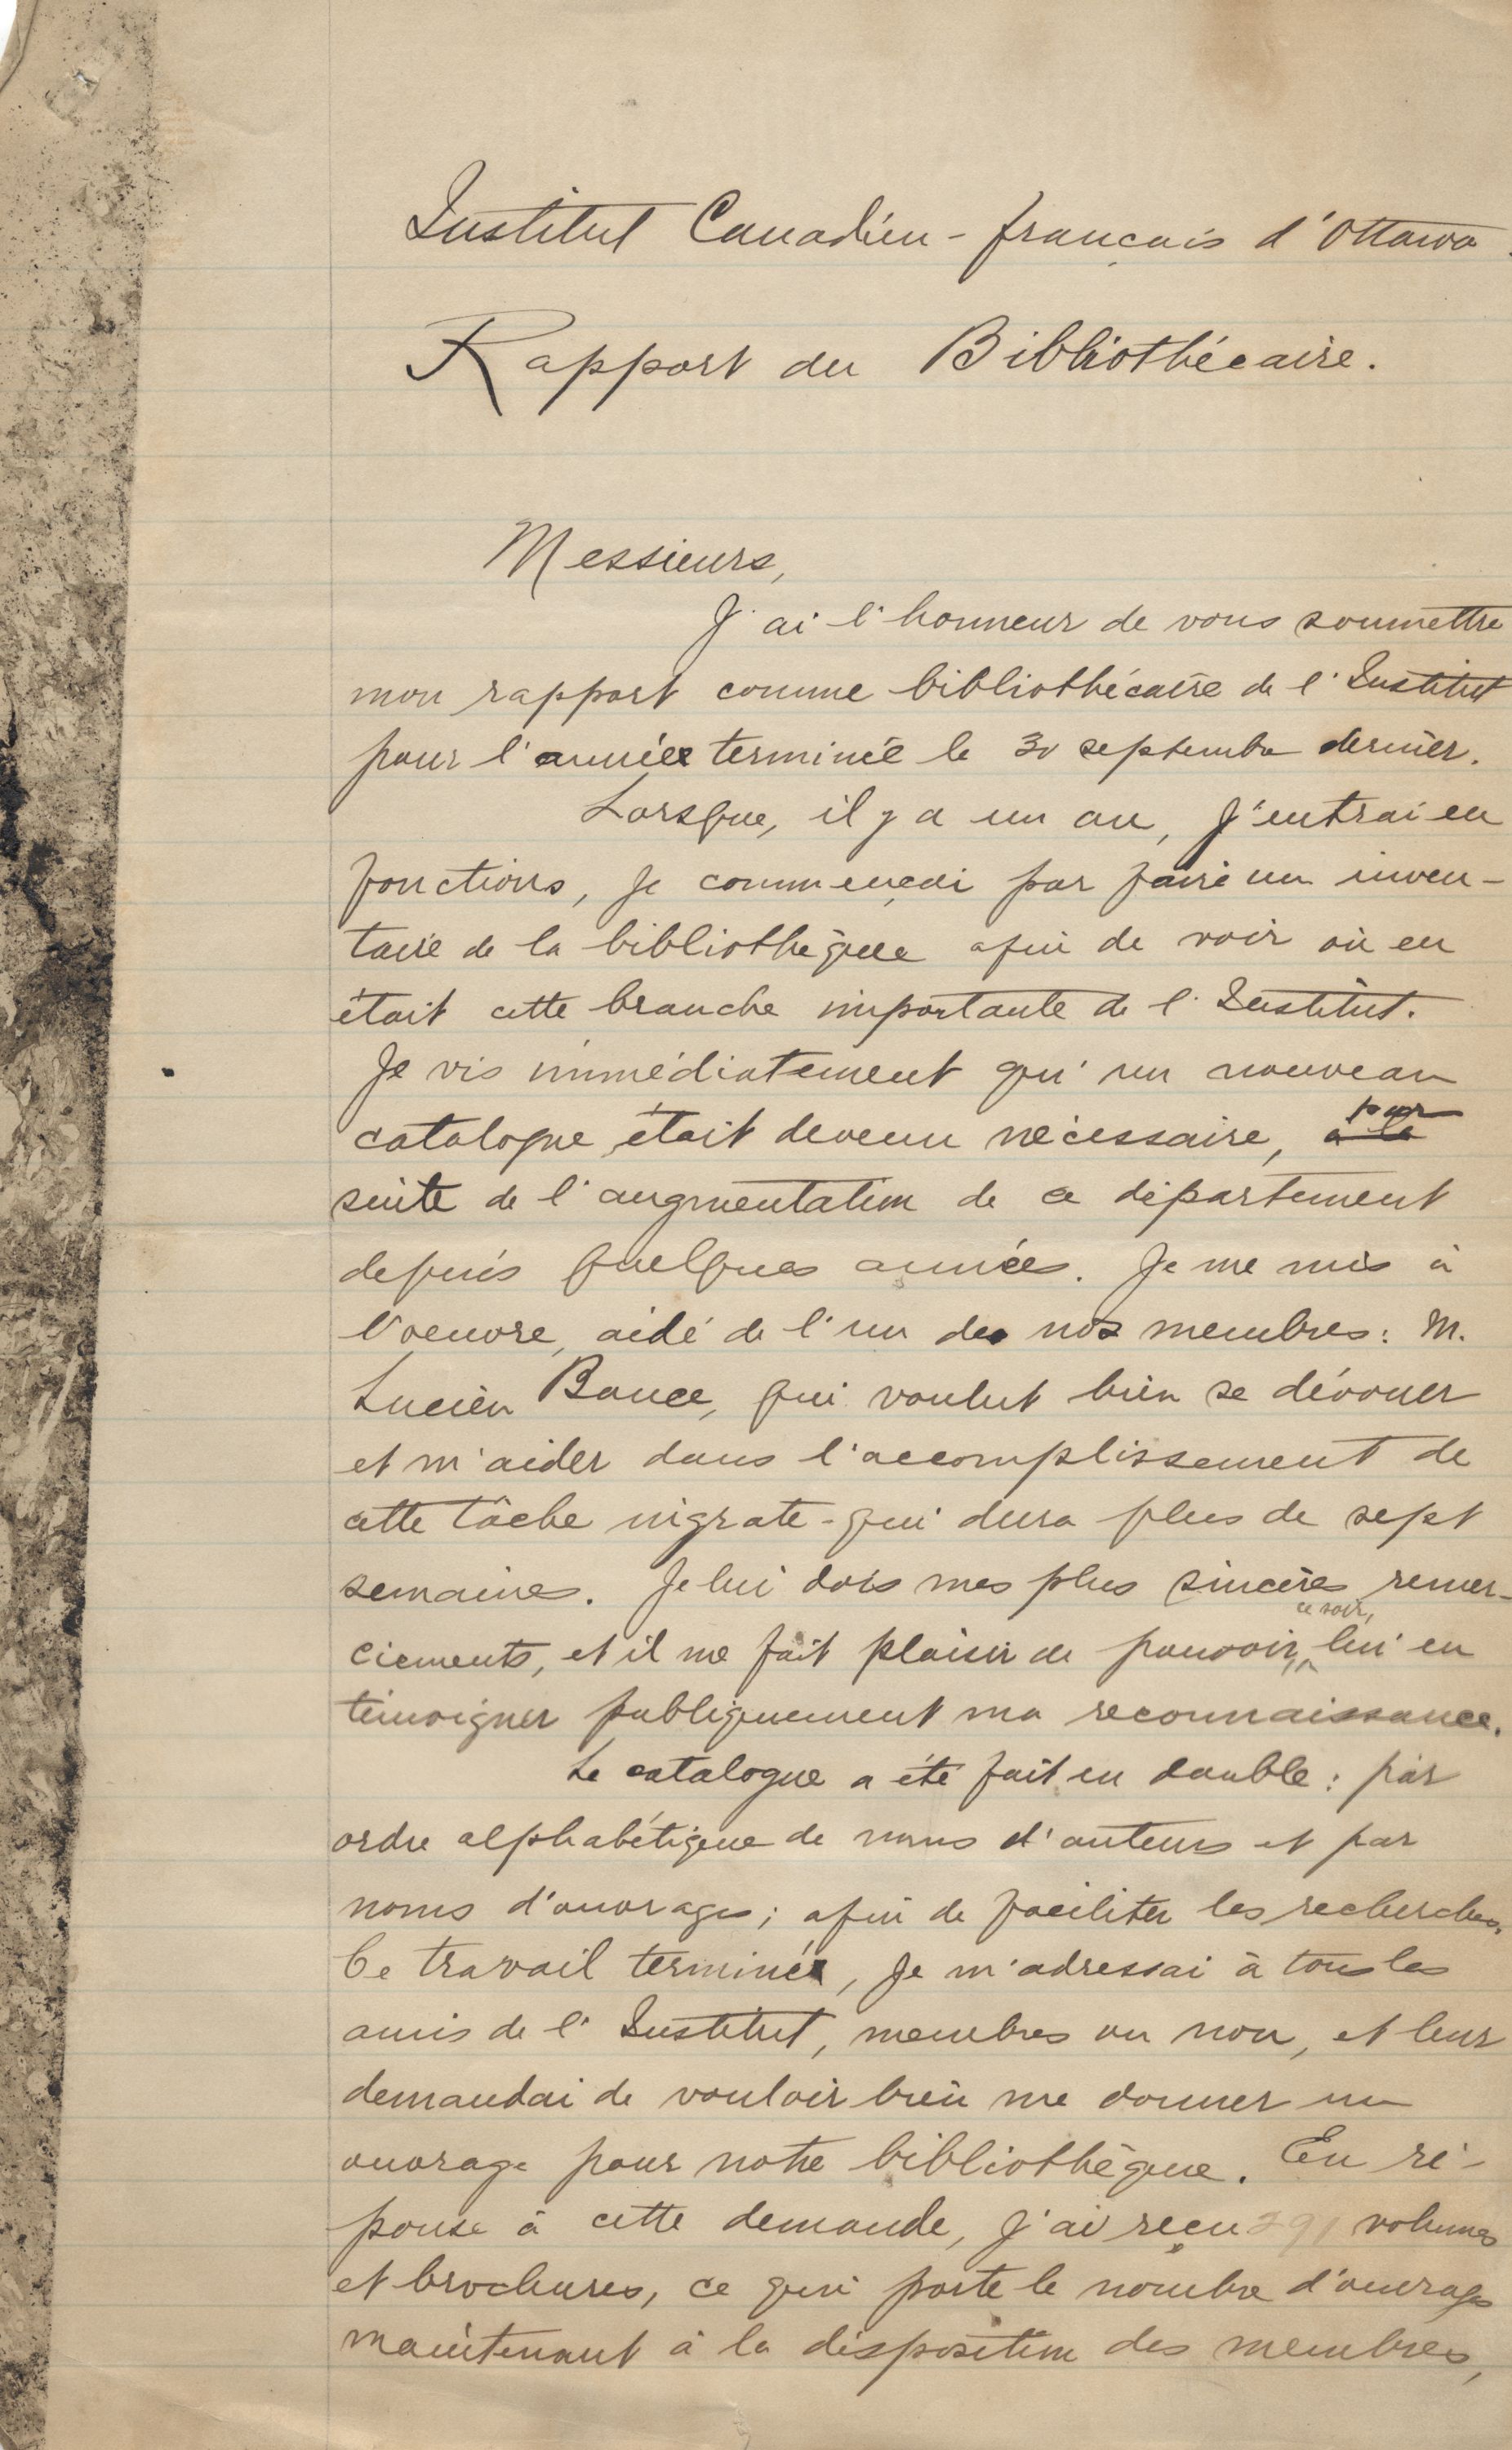 Institut Canadien-français d'Ottawa.
Rapport du Bibliothécaire.
Messieurs,
J'ai l'honneur de vous soumettre
mon rapport comme bibliothécaire de l'Institut
pour l'année terminée le 30 septembre dernier.
Lorsque, il y a un an, j'entrai en
fonctions, je commençai par faire un inven-
taire de la bibliothèque afin de voir où en
était cette branche importante de l'Institut.
Je vis immédiatement qu'un nouveau
catalogue était devenu nécessaire, à la par
suite de l'augmentation de ce département
depuis quelques années. Je me mis à
l'oeuvre, aidé de l'un de nos membres: M.
Lucien Bance, qui voulut bien se dévouer
et m'aider dans l'accomplissement de
cette tâche ingrate - qui dura plus de sept
semaines. Je lui dois mes plus sincères remer-
ciements, et il me fait plaisir de pouvoir, ce soir, lui en
témoigner publiquement ma reconnaissance.
Le catalogue a été fait en double: par
ordre alphabétique de noms d'auteurs et par
noms d'ouvrages; afin de faciliter les recherches.
Ce travail terminé, je m'adressai à tous les
amis de l'Institut, membres ou non, et leur
demandai de vouloir bien me donner un
ouvrage pour notre bibliothèque. En ré-
ponse à cette demande, j'ai reçu 291 volumes
et brochures, ce qui porte le nombre d'ouvrages
maintenant à la disposition des membres,